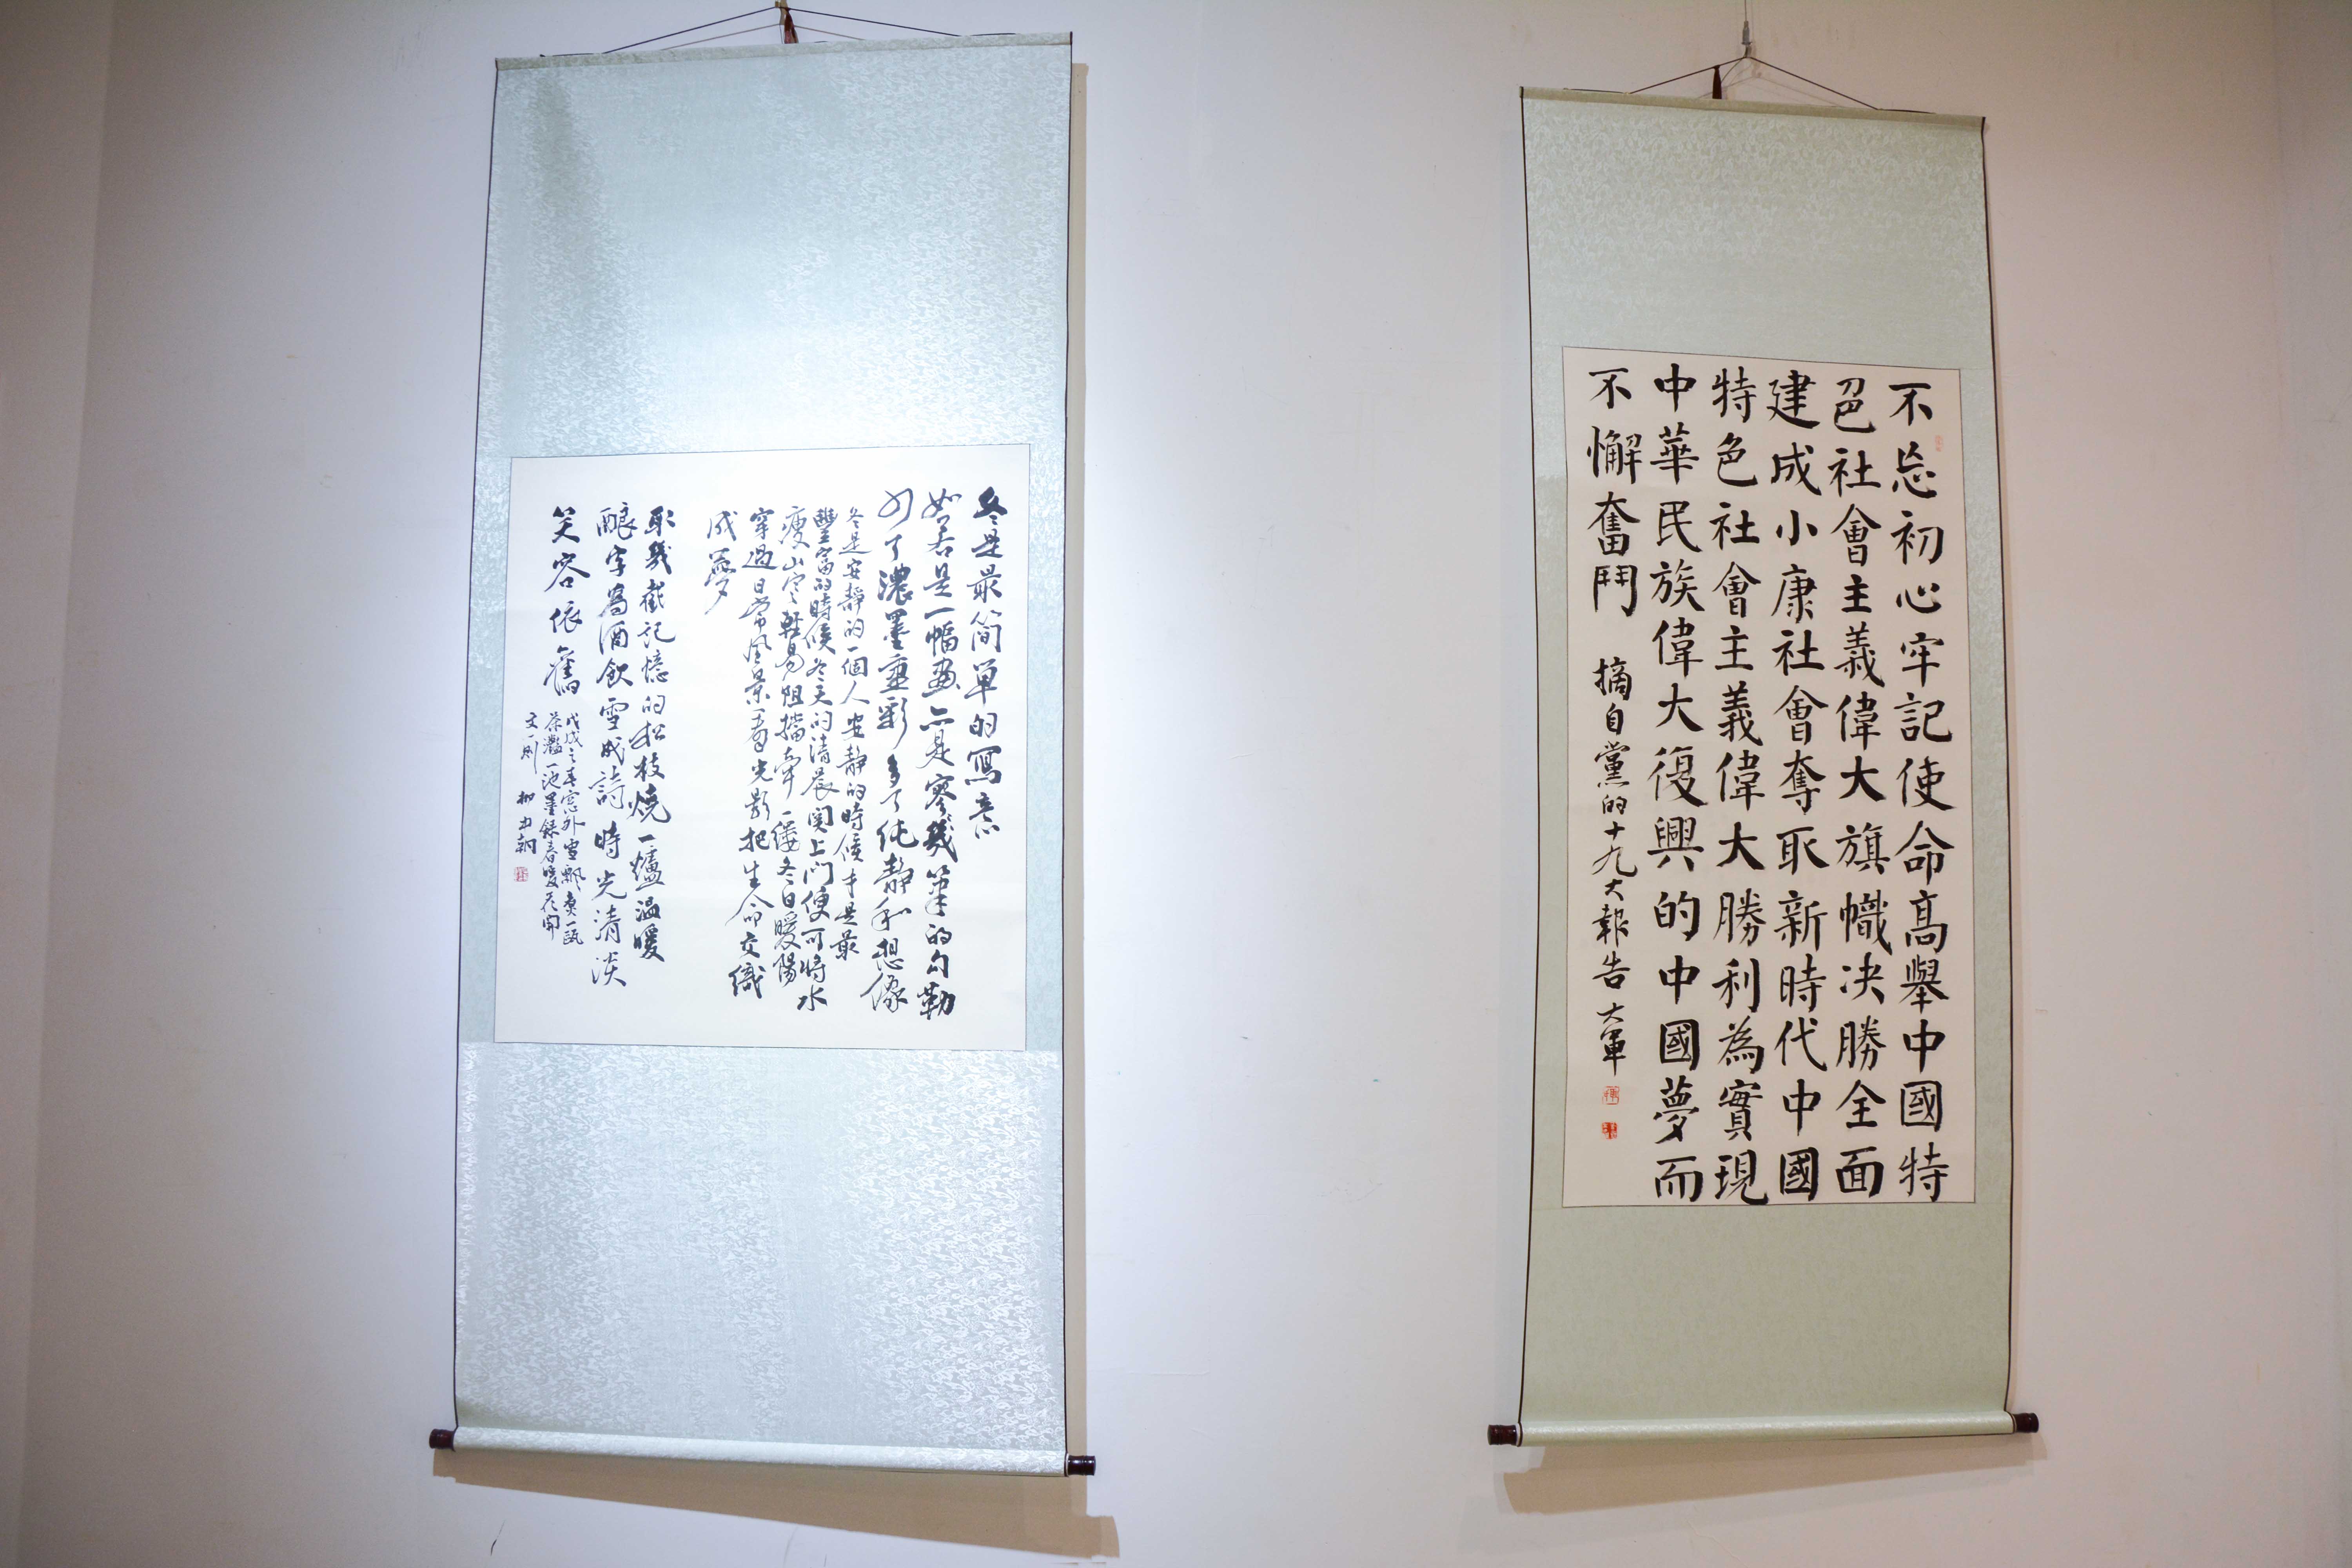 不忘初心牢記使命高舉中國特
色社會主義偉大旗幟决勝全面
建成小康社會奪取新時代中國
特色社會主義偉大勝利為實現
中華民族偉大復興的中國夢而
不懈奮鬥 摘自黨的十九大報告 大軍
冬是最简單的寫意
如若是一幅畫亦是寥寥幾筆的勾勒
少了濃墨重彩多了純靜和想像
冬是安靜的一個人安靜的時候才是最
豐富的時候冬天的清晨関上门便可將水
瘦山寒輕易阻擋牽一縷冬日暖陽
穿過日常風景看光影把生命交織
成夢
取幾截記憶的松枝燒一爐温暖
釀字為酒飲雪成詩時光清淡
笑容依舊
戊戌之春窓外雪飄煮一甌
茶灩一池墨録春暖花開
文一則